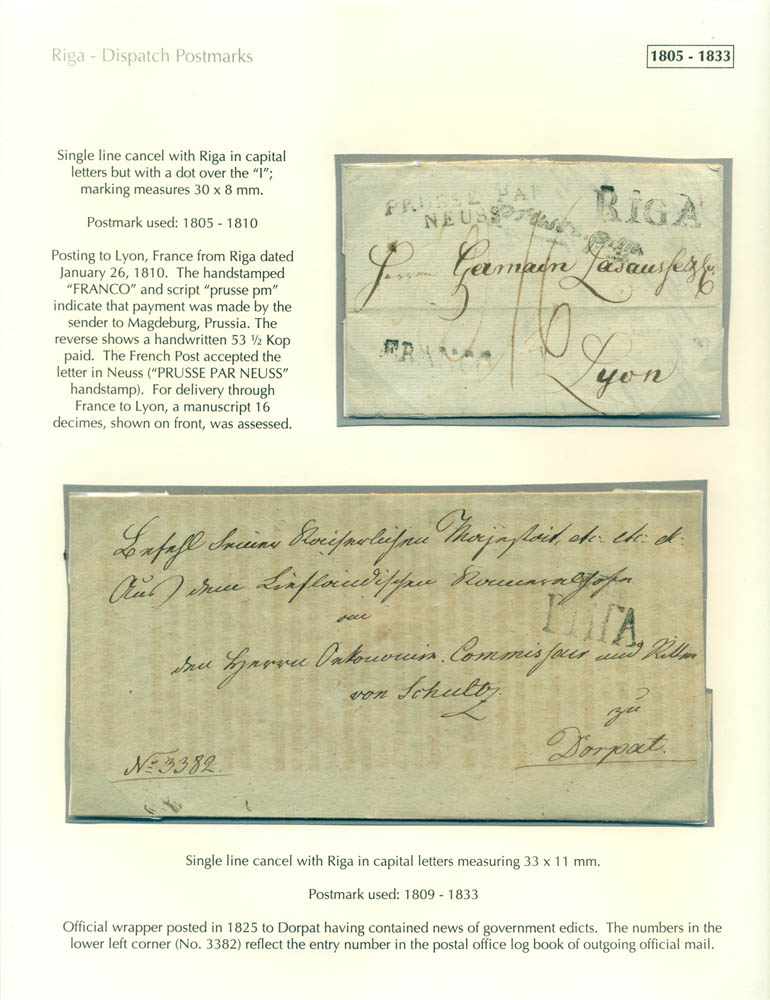 Riga - Dispatch Postmarks
1805 - 1833
Single line cancel with Riga in capital
letters but with a dot over the “I”;
marking measures 30 x 8 mm.
Postmark used: 1805 - 1810
Posting to Lyon, France from Riga dated
January 26, 1810. The handstamped
“FRANCO” and script “prusse pm”
indicate that payment was made by the
sender to Magdeburg, Prussia. The
reverse shows a handwritten 53 ½ Kop
paid. The French Post accepted the
letter in Neuss (“PRUSSE PAR NEUSS”
handstamp). For delivery through
France to Lyon, a manuscript 16
decimes, shown on front, was assessed.
PRUSSE PAR
NEUSS
RİGA
Herrn Germain
FRANCO
16
Lyon
Befehl Seiner Kaiserlichen Majestät, etc. etc. etc.
Aus dem Liefländischen Kameralhofe
RIGA
an
den Herrn Oekonomie Commissair und Ritter
von Schultz
zu
Dorpat.
No. 3382.
Single line cancel with Riga in capital letters measuring 33 x 11 mm.
Postmark used: 1809 - 1833
Official wrapper posted in 1825 to Dorpat having contained news of government edicts. The numbers in the
lower left corner (No. 3382) reflect the entry number in the postal office log book of outgoing official mail.